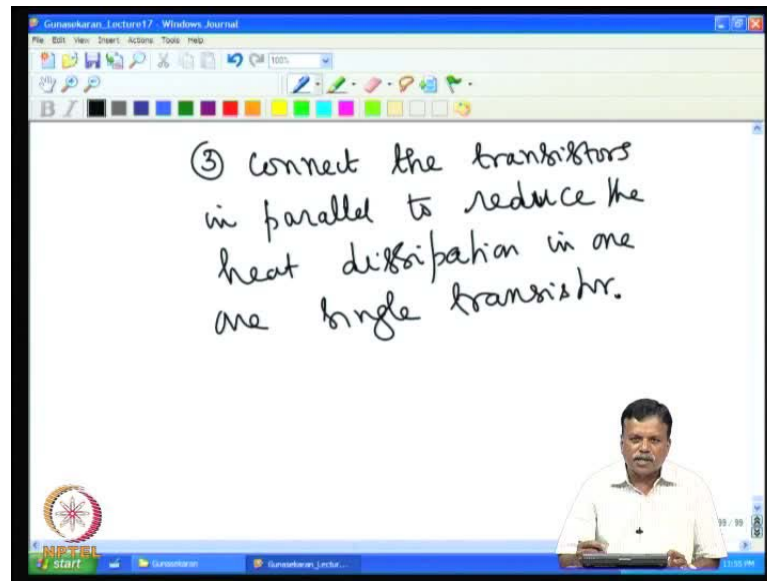 Gunasekaran_Lecture17 - Windows Journal
File Edit View Insert Actions Tools Help
100%
B I
③ Connect the transistors
in parallel to reduce the
heat dissipation in one
one single transistor.
99 / 99
NPTEL
start Gunasekaran Gunasekaran_Lectur...
11:55 PM